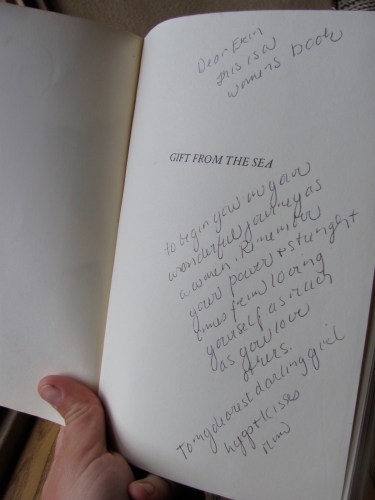 Dear Erin
this is a
womens book
GIFT FROM THE SEA
to begin you on your
wonderful journey as
a women. Remember
your power + strenght
comes from loving
yourself as much
as you love
others.
To my dearest darling girl
hugs + kisses